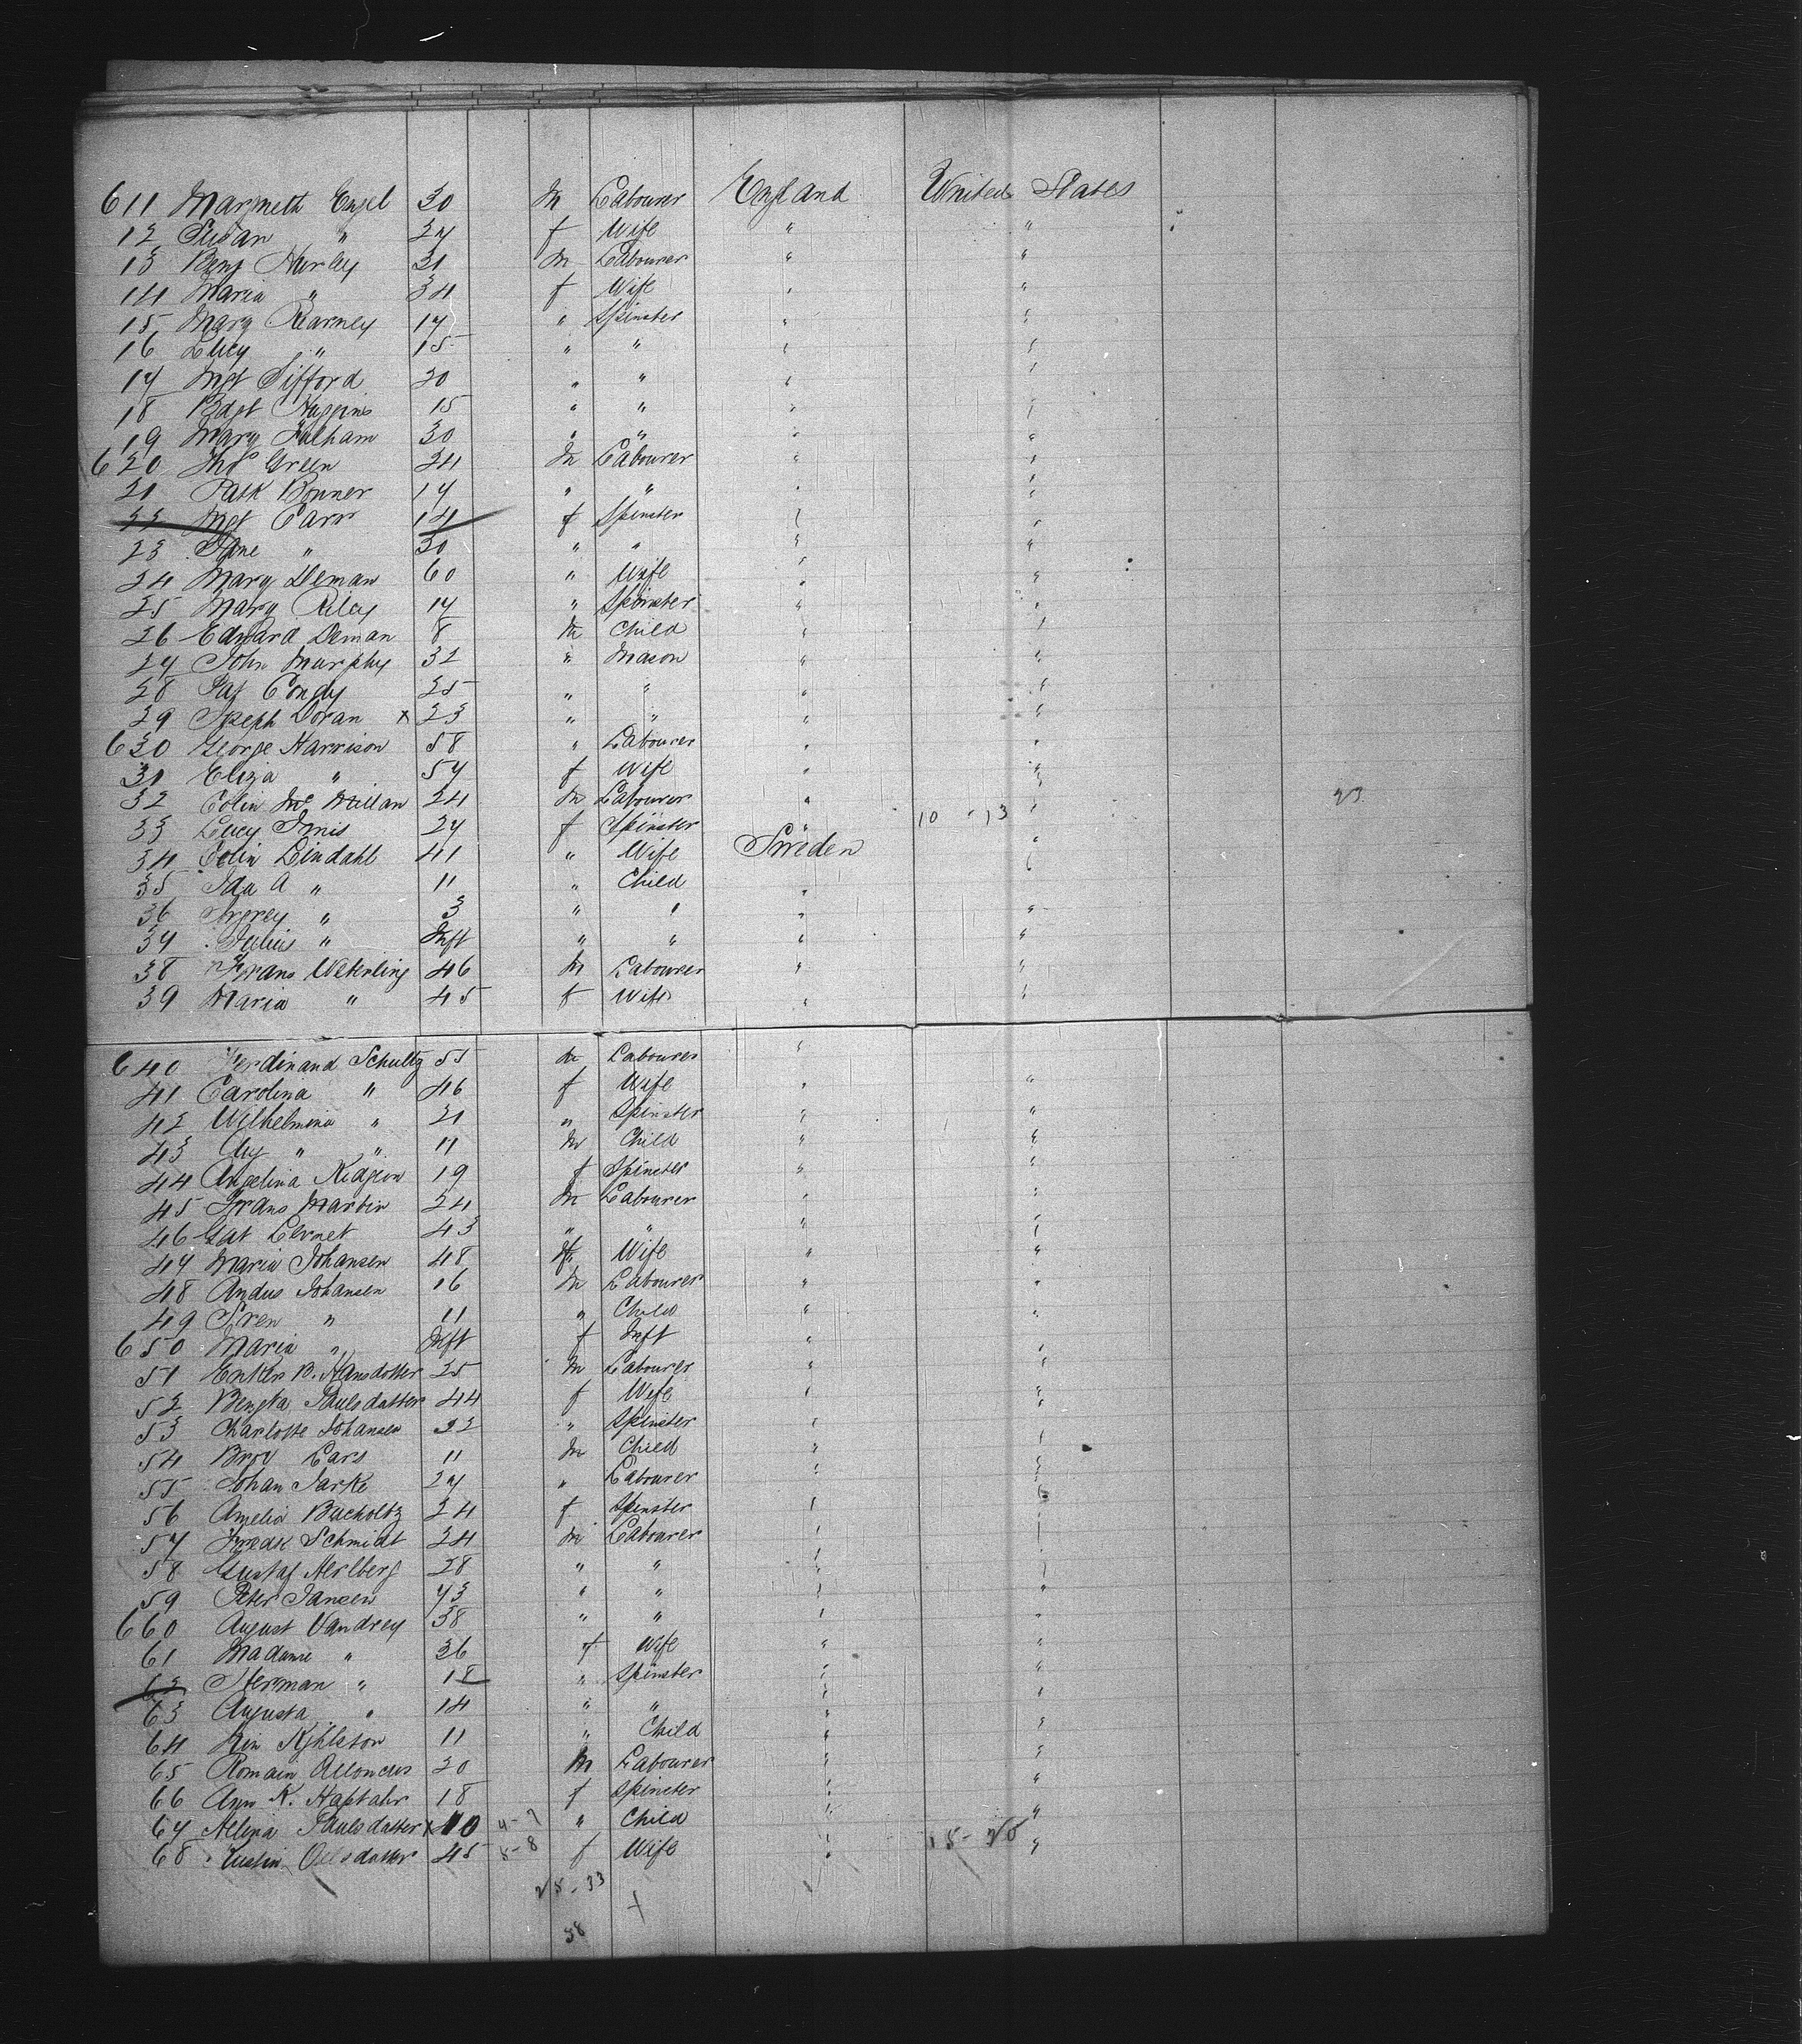 611 Marjneth Engel 30 M Labourer England United States
12 Susan " 27 f Wife " "
13 Benj Hurley 31 M Labourer " "
14 Maria " 34 f Wife " "
15 Mary Kearney 17 " Spinster " "
16 Lucy " 15 " " " "
17 Mgt Gifford 20 " " " "
18 Bdgt Huggins 15 " " " "
19 Mary Fulham 30 " " " "
620 Thos Green 24 M Labourer " "
21 Patk Bonner 17 " " " "
22 Mgt Carr 14 f Spinster " "
23 Jane " 30 " " " "
24 Mary Deman 60 " Wife " "
25 Mary Riley 17 " Spinster " "
26 Edward Deman 8 M Child " "
27 John Murphy 32 " Mason " "
28 Pat Condy 25 " " " "
29 Joseph Doran x 23 " " " "
630 George Harrison 58 " Labourer " "
31 Eliza " 57 f Wife " "
32 Colin McMillan 24 M Labourer " " 23
33 Lucy Innis 27 f Spinster " 10 - 13 "
34 Colin Lindahl 41 " Wife Sweden "
35 Ida A " 11 " Child " "
36 " 3 " " " "
37 Julius " Inft " " " "
38 Frans Weterling 46 M Labourer " "
39 Maria " 45 f Wife " "
640 Ferdinand Schultz 55 M Labourer "
41 Carolina " 46 f Wife " "
42 Wilhelmina " 21 " Spinster " "
43 Aug " " 11 M Child " "
44 Angelina Kidgeon 19 f Spinster " "
45 Frans Martin 24 M Labourer " "
46 Gat Lernet 43 " " " "
47 Maria Johansen 48 f Wife " "
48 Andus Johansen 16 M Labourer " "
49 Soren " 11 " Child " "
650 Maria " Inft f Inft " "
51 B. Hansdotter 25 M Labourer " "
52 Bengta Paulsdatter 44 f Wife " "
53 Charlotte Johansen 22 " Spinster " "
54 Brov Lars 11 M Child " "
55 Johan Jarke 27 " Labourer " "
56 Amelia Bucholtz 24 f Spinster " "
57 Fredk Schmidt 24 M Labourer " "
58 Gustaf Aerlberg 28 " " " "
59 Peter Jansen 43 " " " "
660 August Vandrey 38 " " " "
61 Madame " 36 f Wife " "
62 Herman " 18 " Spinster " "
63 Augusta " 14 " " " "
64 Kin Kjhlston 11 " Child " "
65 Romain Allondus 20 M Labourer " "
66 Ann K. Haptahr 18 f Spinster " "
67 Allina Paulsdatter x 10 4-7 " Child " "
68 Justin Olesdatter 45 5-8 f Wife " 15-20 "
25-33
58